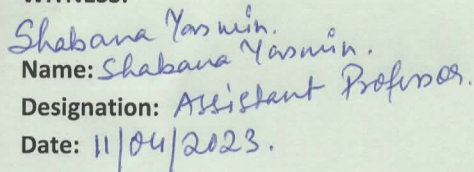 WITNESS:
Shabana Yasmin.
Name: Shabana Yasmin.
Designation: Assistant Professor.
Date: 11/04/2023.